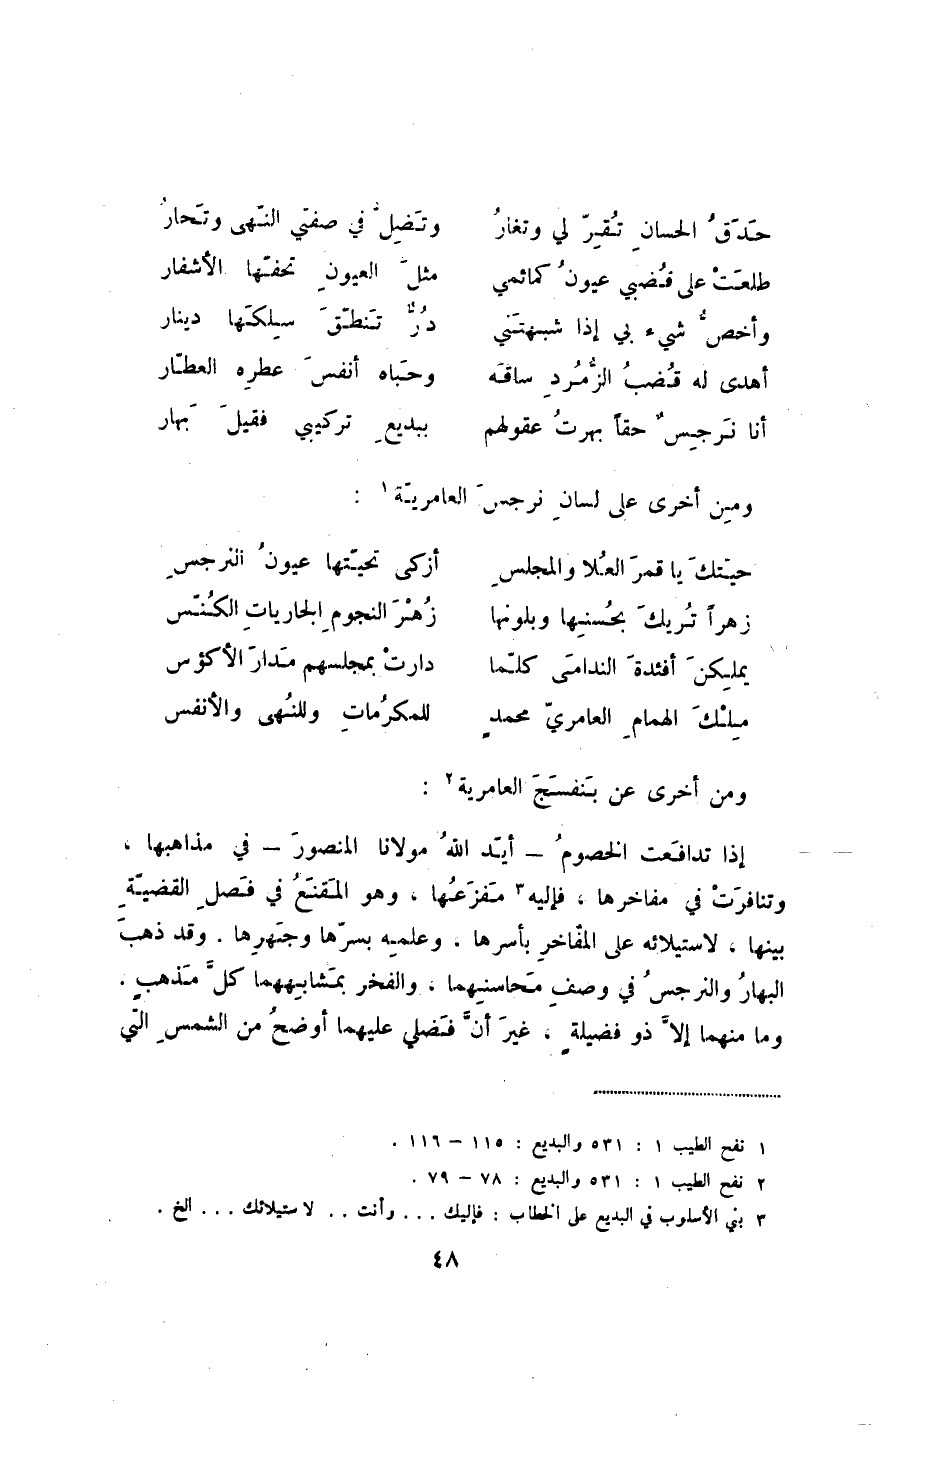 حَدَقُ الحسانِ تُقِرّ لي وتغارُ وتَضِلّ في صفتي النّهى وتَحارُ
طلعَتْ على قُضبي عيونُ كمائمي مثلَ العيونِ تحفّها الأشفار
وأخصُّ شيء بي إذا شبهتَني دُرٌّ تَنطّقَ سِلكَها دينار
أهدى له قُضبُ الزُّمُردِ ساقَه وحَباه أنفسَ عطرِه العطّار
أنا نَرجِسٌ حقاً بهرتُ عقولهم ببديعِ تركيبي فقيلَ بَهار
ومِن أخرى على لسانِ نرجسَ العامريّة ١ :
حيّتكَ يا قمرَ العُلا والمجلسِ أزكى تحيّتها عيونُ النرجسِ
زهراً تُريكَ بحُسنِها وبلونها زُهْرَ النجومِ الجارياتِ الكُنّس
يملِكنَ أفئدةَ الندامَى كلّما دارتْ بمجلسهم مَدارَ الأكؤس
مِلْكَ الهمامِ العامريّ محمدٍ للمكرُماتِ وللنُهى والأنفس
ومن أخرى عن بَنفسَجَ العامرية ٢ :
إذا تدافعَت الخصومُ – أيّد اللهُ مولانا المنصورَ – في مذاهبها ،
وتنافرَتْ في مفاخرها ، فإليه ٣ مَفزَعُها ، وهو المَقنَعُ في فَصلِ القضيّةِ
بينها ، لاستيلائه على المفاخرِ بأسرها ، وعلمِه بسرّها وجَهرِها . وقد ذهبَ
البهارُ والنرجسُ في وصفِ مَحاسنِهما ، والفخر بمَشابِههما كلَّ مَذهبٍ .
وما منهما إلاَّ ذو فضيلةٍ ، غيرَ أنَّ فَضلي عليهما أوضحُ من الشمسِ التّي
١ نفح الطيب ١ : ٥٣١ والبديع : ١١٥ – ١١٦ .
٢ نفح الطيب ١ : ٥٣١ والبديع : ٧٨ – ٧٩ .
٣ بني الأسلوب في البديع على الخطاب : فإليك ... وأنت .. لاستيلائك ... الخ .
٤٨